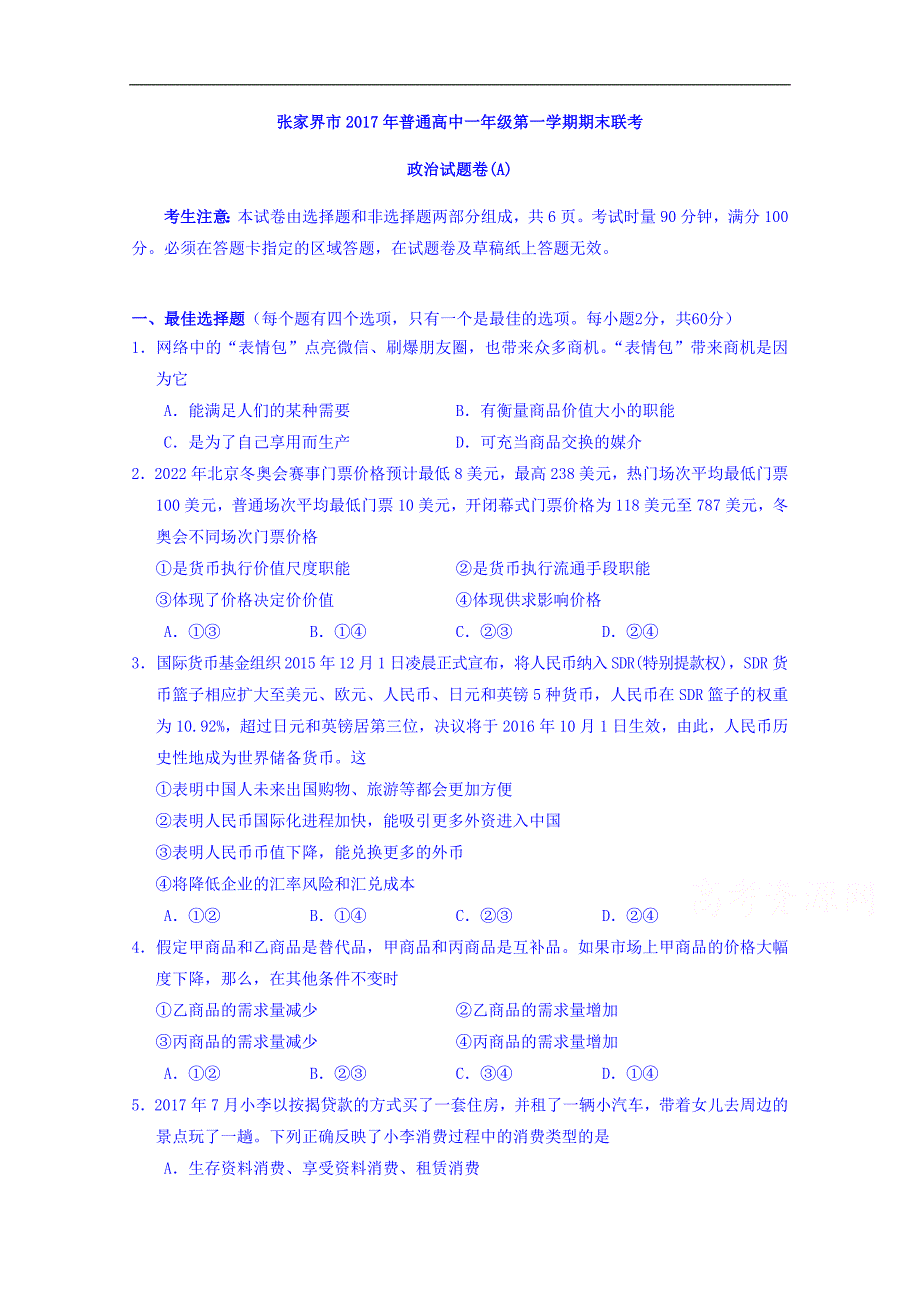 张家界市2017年普通高中一年级第一学期期末联考
政治试题卷(A)
考生注意:本试卷由选择题和非选择题两部分组成，共6页。考试时量90分钟，满分100
分。必须在答题卡指定的区域答题，在试题卷及草稿纸上答题无效。
一、最佳选择题（每个题有四个选项，只有一个是最佳的选项。每小题2分，共60分）
1．网络中的“表情包”点亮微信、刷爆朋友圈，也带来众多商机。“表情包”带来商机是因
为它
A．能满足人们的某种需要 B．有衡量商品价值大小的职能
C．是为了自己享用而生产 D．可充当商品交换的媒介
2．2022年北京冬奥会赛事门票价格预计最低8美元，最高238美元，热门场次平均最低门票
100美元，普通场次平均最低门票10美元，开闭幕式门票价格为118美元至787美元，冬
奥会不同场次门票价格
①是货币执行价值尺度职能 ②是货币执行流通手段职能
③体现了价格决定价价值 ④体现供求影响价格
A．①③ B．①④ C．②③ D．②④
3．国际货币基金组织2015年12月1日凌晨正式宣布，将人民币纳入SDR(特别提款权)，SDR货
币篮子相应扩大至美元、欧元、人民币、日元和英镑5种货币，人民币在SDR篮子的权重
为10.92%，超过日元和英镑居第三位，决议将于2016年10月1日生效，由此，人民币历
史性地成为世界储备货币。这
①表明中国人未来出国购物、旅游等都会更加方便
②表明人民币国际化进程加快，能吸引更多外资进入中国
③表明人民币币值下降，能兑换更多的外币
④将降低企业的汇率风险和汇兑成本
高考资源网
A．①② B．①④ C．②③ D．②④
4．假定甲商品和乙商品是替代品，甲商品和丙商品是互补品。如果市场上甲商品的价格大幅
度下降，那么，在其他条件不变时
①乙商品的需求量减少 ②乙商品的需求量增加
③丙商品的需求量减少 ④丙商品的需求量增加
A．①② B．②③ C．③④ D．①④
5．2017年7月小李以按揭贷款的方式买了一套住房，并租了一辆小汽车，带着女儿去周边的
景点玩了一趟。下列正确反映了小李消费过程中的消费类型的是
A．生存资料消费、享受资料消费、租赁消费